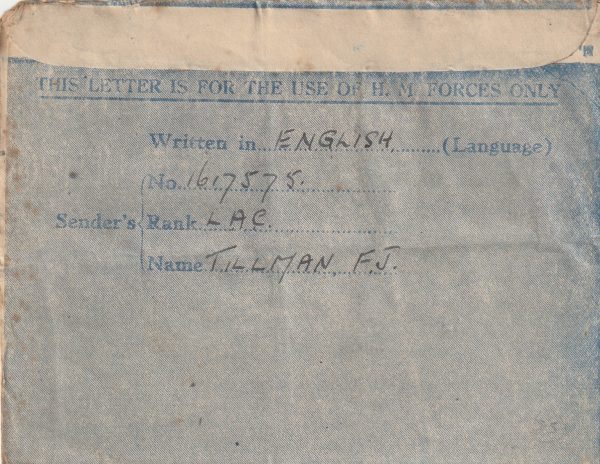 THIS LETTER IS FOR THE USE OF H. M. FORCES ONLY
Written in ENGLISH (Language)
No. 1617575.
Sender's Rank LAC.
Name TILLMAN, F.J.